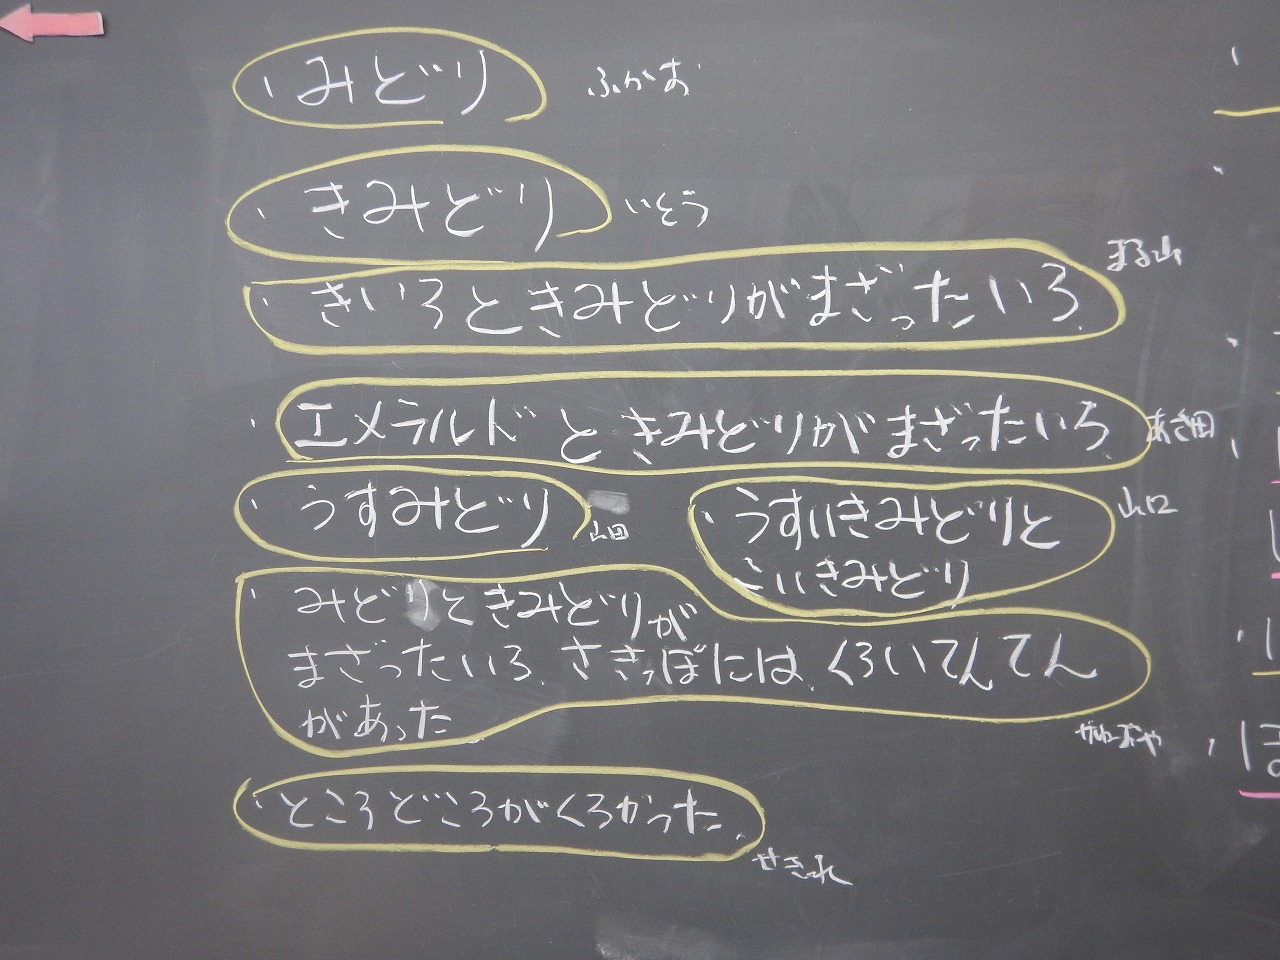 ・みどり ふかお
・きみどり いとう
まる山
・きいろときみどりがまざったいろ
・エメラルドときみどりがまざったいろ あさ田
・うすみどり 山田
・うすいきみどりと 山口
こいきみどり
・みどりときみどりが
まざったいろ、さきっぽには、くろいてんてん
があった
・ところどころがくろかった。
せきれ
ほ